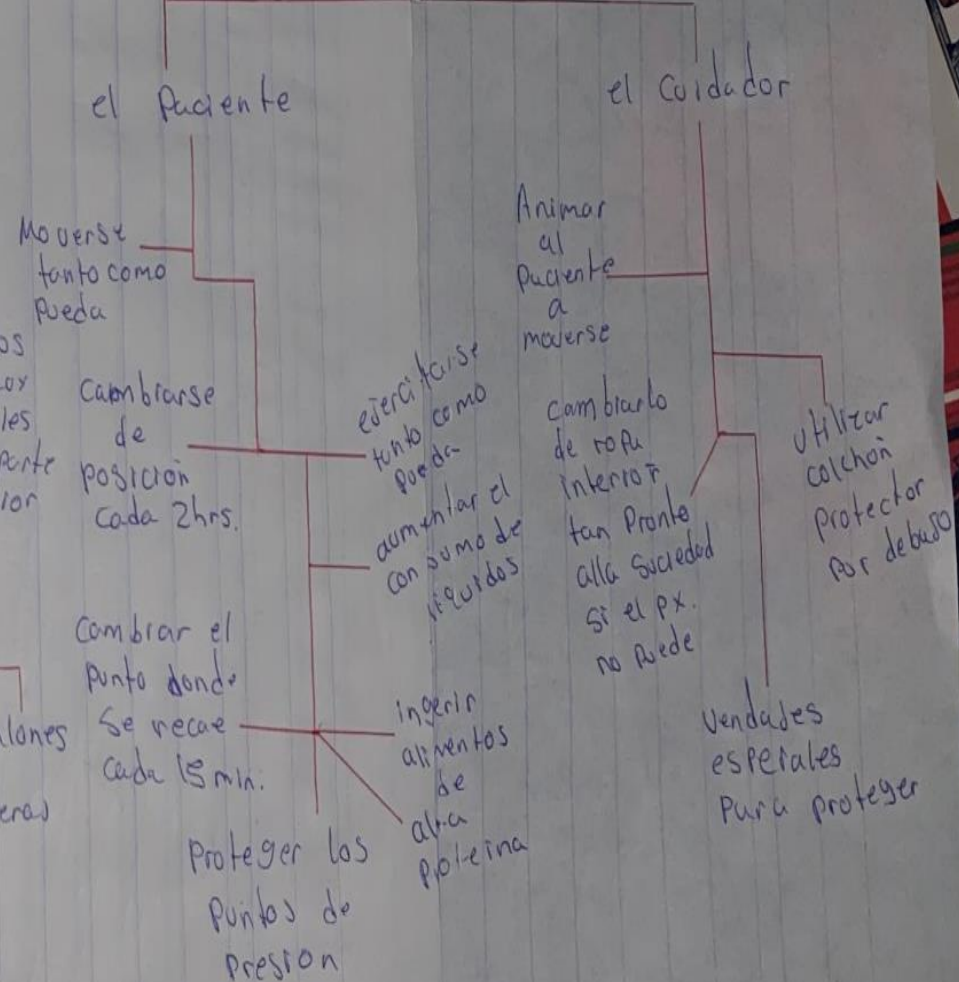 el Paciente
Moverse
tanto como
pueda
Cambiarse
de
posición
Cada 2hrs.
ejercitarse
tanto como
pueda
aumentar el
consumo de
liquidos
Cambiar el
punto donde
se recae
cada 15 min.
ingerir
alimentos
de
alta
proteina
Proteger los
puntos de
presion
el Cuidador
Animar
al
Paciente
a
moverse
Cambiarlo
de ropa
interior
tan Pronto
alla Suciedad
si el px.
no puede
Utilizar
colchón
protector
por debajo
Vendajes
espeiales
Para proteger
os
les
parte
ior
lones
eras